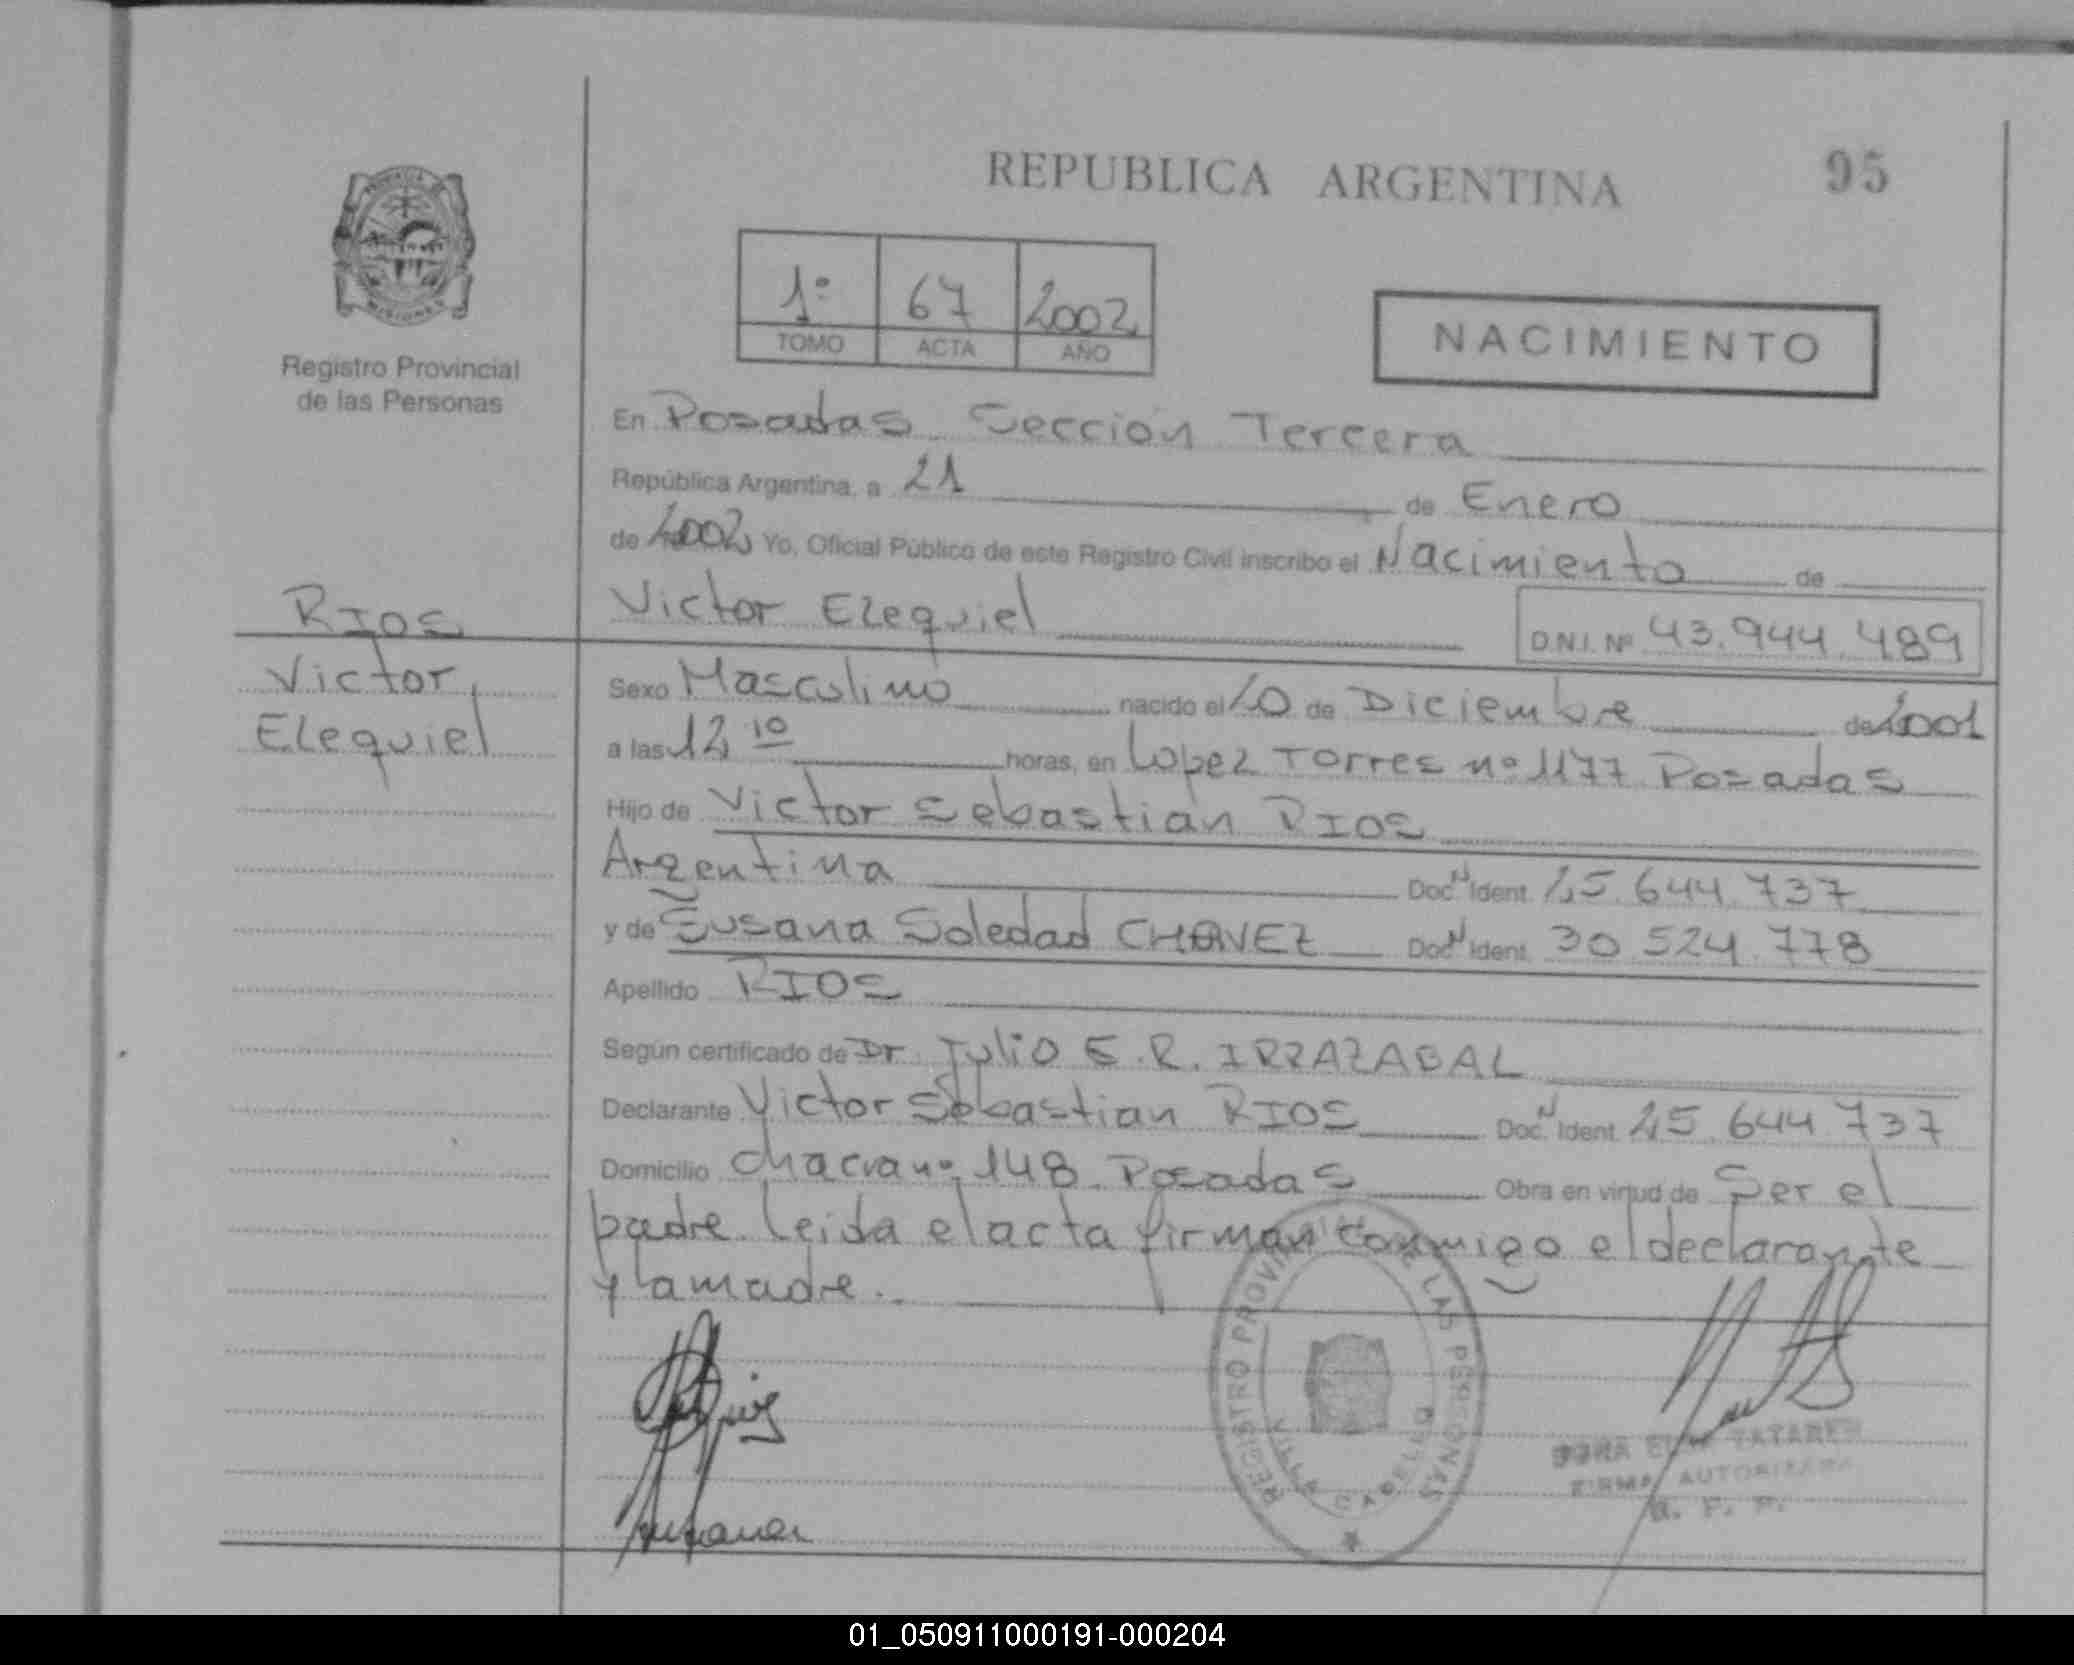 REPUBLICA ARGENTINA 95
1º 67 2002
TOMO ACTA AÑO
NACIMIENTO
MISIONES
Registro Provincial
de las Personas
En Posadas Sección Tercera
República Argentina, a 21 de Enero
de 2002 Yo, Oficial Público de este Registro Civil inscribo el Nacimiento de
RIOS
Victor Ezequiel D.N.I. Nº 43.944.489
Victor
Ezequiel
Sexo Masculino nacido el 20 de Diciembre de 2001
a las 12 10 horas, en Lopez Torres nº 1177 Posadas
Hijo de Victor Sebastián RIOS
Argentina Doc. N Ident. 25.644.737
y de Susana Soledad CHAVEZ Doc. N Ident. 30.524.778
Apellido RIOS
Según certificado de Dr. Julio E.R. IRRAZABAL
Declarante Victor Sebastian RIOS Doc. N Ident. 25.644.737
Domicilio chacra nº 148 Posadas Obra en virtud de Ser el
padre. Leida el acta firman conmigo el declarante
y la madre.
REGISTRO PROVINCIAL DE LAS PERSONAS
VILLA CABELLO
FIRMA AUTORIZADA
01_050911000191-000204